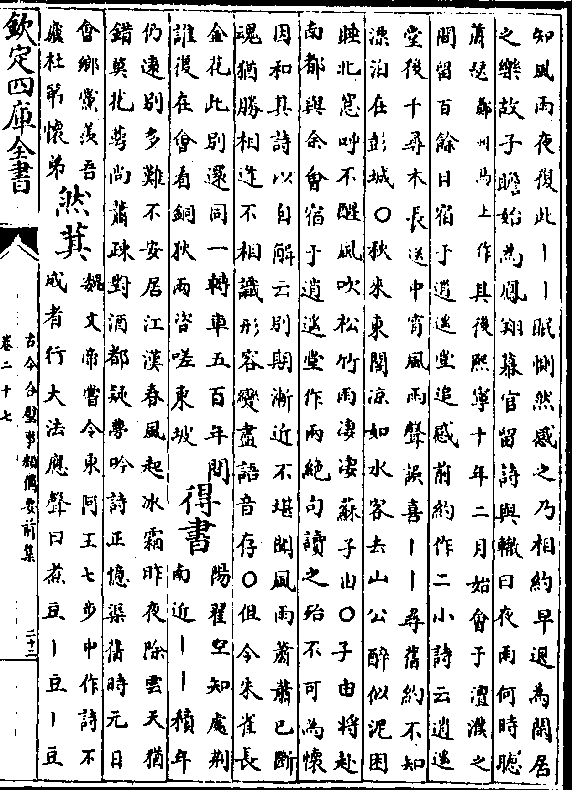 知風雨夜復此丨丨眠惻然感之乃相約早退為閒居
之樂故子瞻始為鳳翔幕官留詩與轍曰夜雨何時聽
蕭瑟鄭州馬上作其後熙寧十年二月始會于澶濮之
間留百餘日宿于逍遥堂追感前約作二小詩云逍遥
堂後十尋木長送中宵風雨聲誤喜丨丨尋舊約不知
漂泊在彭城〇秋来東閣凉如水客去山公醉似泥困
睡北窓呼不醒風吹松竹雨凄凄蘇子由〇子由將赴
南都與余會宿于逍遥堂作兩絶句讀之殆不可為懷
因和其詩以自解云别期漸近不堪聞風雨蕭蕭已斷
魂猶勝相逢不相識形容變盡語音存〇但令朱雀長
金花此别還同一轉車五百年間
誰復在會看銅狄兩咨嗟東坡
得書
陽翟空知處荆
南近丨丨積年
仍逺别多難不安居江漢春風起冰霜昨夜除雲天猶
錯莫花蕚尚蕭疎對酒都疑夢吟詩正憶渠舊時元日
會鄉黨羨吾
廬杜第懷弟
然萁
魏文帝嘗令東阿王七步中作詩不
成者行大法應聲曰煮豆丨豆丨豆
欽定四庫全書
古今合璧事類備要前集
卷二十七
二十二